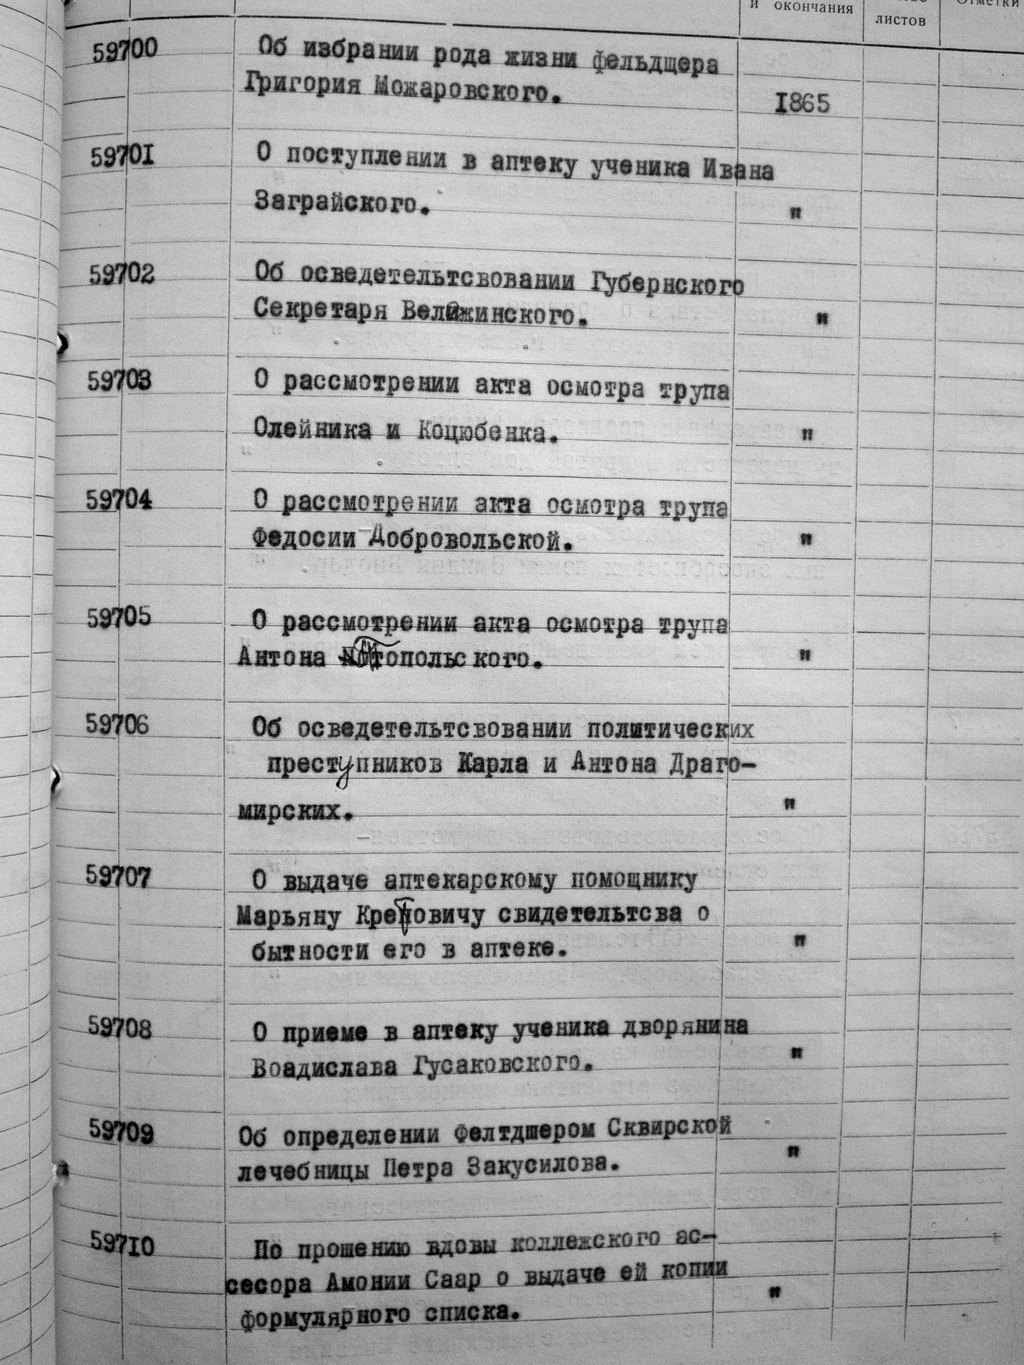 и окончания
листов
Отметки
59700 Об избрании рода жизни фельдшера
Григория Можаровского. 1865
59701 О поступлении в аптеку ученика Ивана
Заграйского. "
59702 Об осведетельтсвовании Губернского
Секретаря Велижинского. "
59703 О рассмотрении акта осмотра трупа
Олейника и Коцюбенка. "
59704 О рассмотрении акта осмотра трупа
Федосии Добровольской. "
59705 О рассмотрении акта осмотра трупа
Антона "
59706 Об осведетельтсвовании политических
преступников Карла и Антона Драго-
мирских. "
59707 О выдаче аптекарскому помощнику
Марьяну свидетельтсва о
бытности его в аптеке. "
59708 О приеме в аптеку ученика дворянина
Воадислава Гусаковского. "
59709 Об определении Фелтдшером Сквирской
лечебницы Петра Закусилова. "
59710 По прошению вдовы коллежского ас-
сесора Амонии Саар о выдаче ей копии
формулярного списка. "